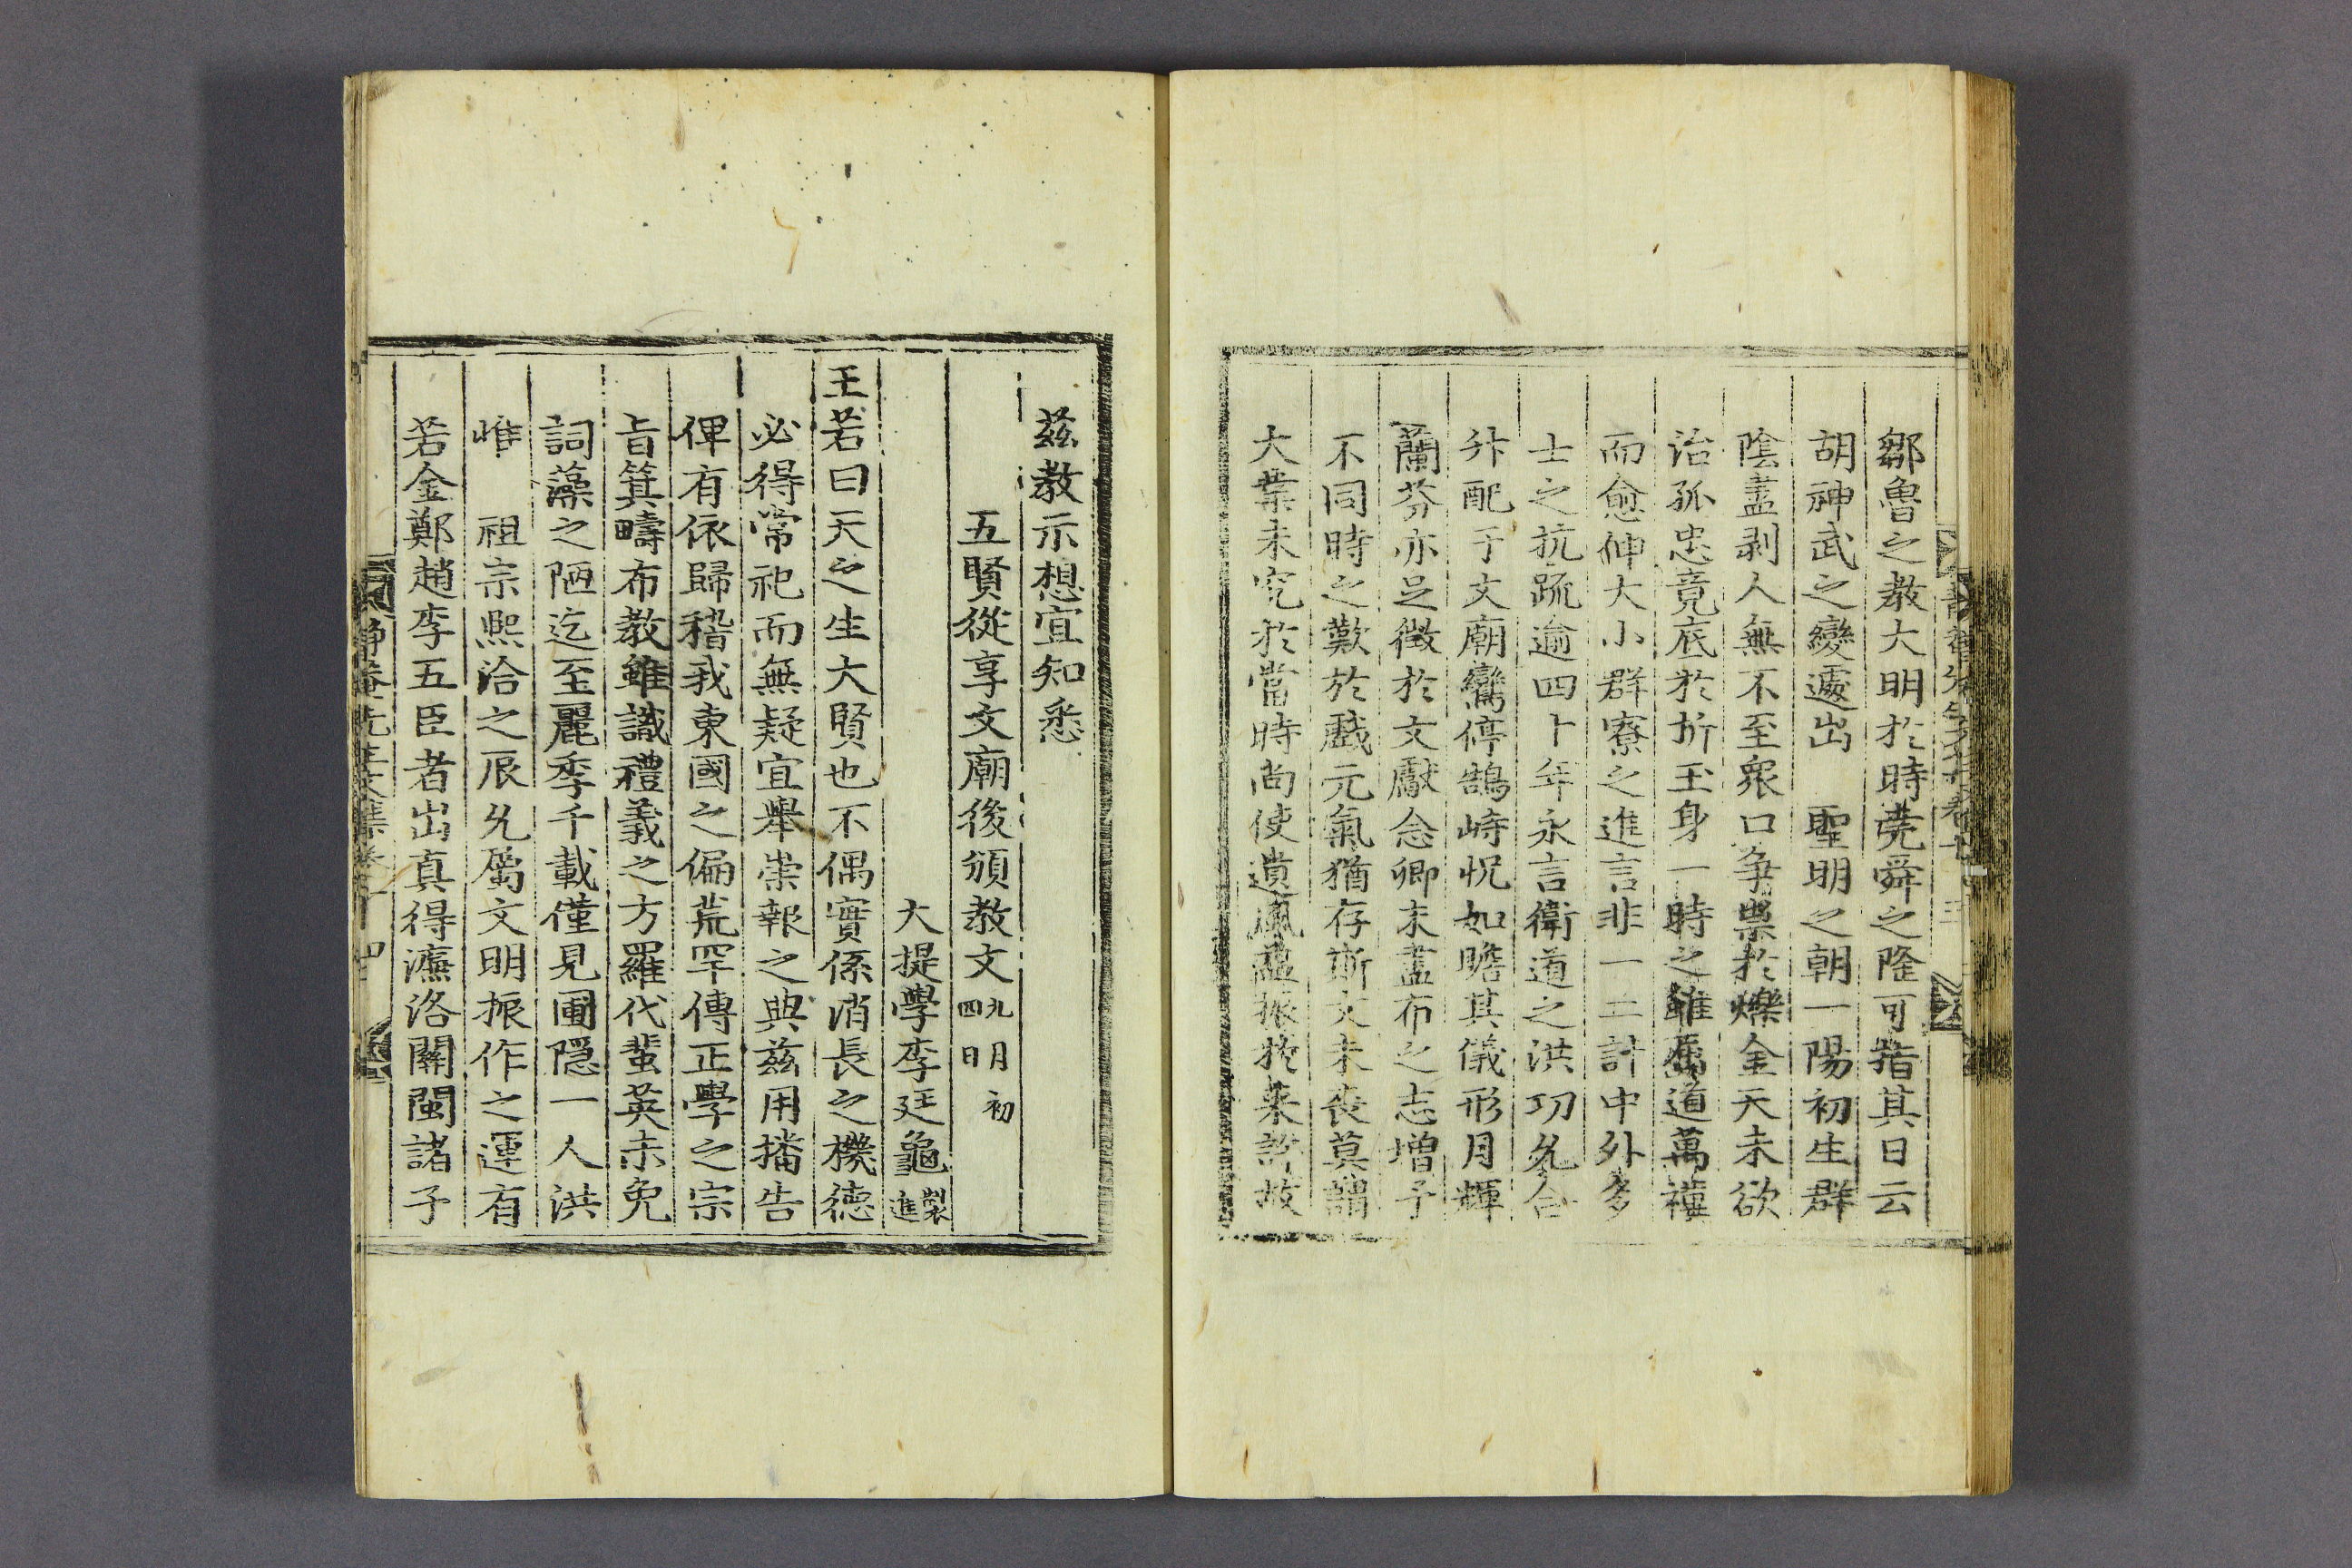 鄒魯之教大明於時堯舜之隆可指其日云
胡神武之變遽出　聖明之朝一陽初生群
陰盡剥人無不至衆口争祟於爍金天未欲
治孤忠竟底於折玉身一時之雖厲道萬禩
而愈伸大小群寮之進言非一二計中外多
士之抗䟽逾四十年永言衛道之洪功允合
升配于文廟鸞停鵠峙怳如瞻其儀形月輝
蘭芬亦足徴於文獻念卿末盡布之志增予
不同時之歎於戱元氣猶存斯文未喪莫謂
大業未究於當時尚使遺風蘊振於来許故
茲教示想宜知悉
五賢從享文廟後頒教文九月初四日
大提學李廷龜製進
王若曰天之生大賢也不偶實係消長之機徳
必得常祀而無疑宜舉崇報之典茲用播告
俾有依歸稽我東國之偏荒罕傳正學之宗
旨箕疇布教雖識禮義之方羅代蜚英未免
詞藻之陋迄至麗季千載僅見圃隠一人洪
惟　祖宗熈洽之辰允屬文明振作之運有
若金鄭趙李五臣者出真得濂洛關閩諸子
静菴先生文集卷之　四